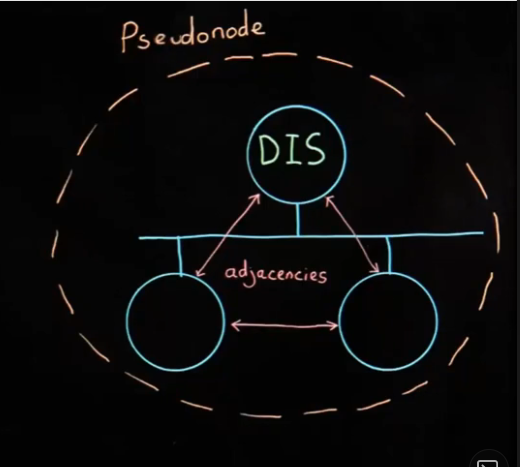 Pseudonode
DIS
adjacencies